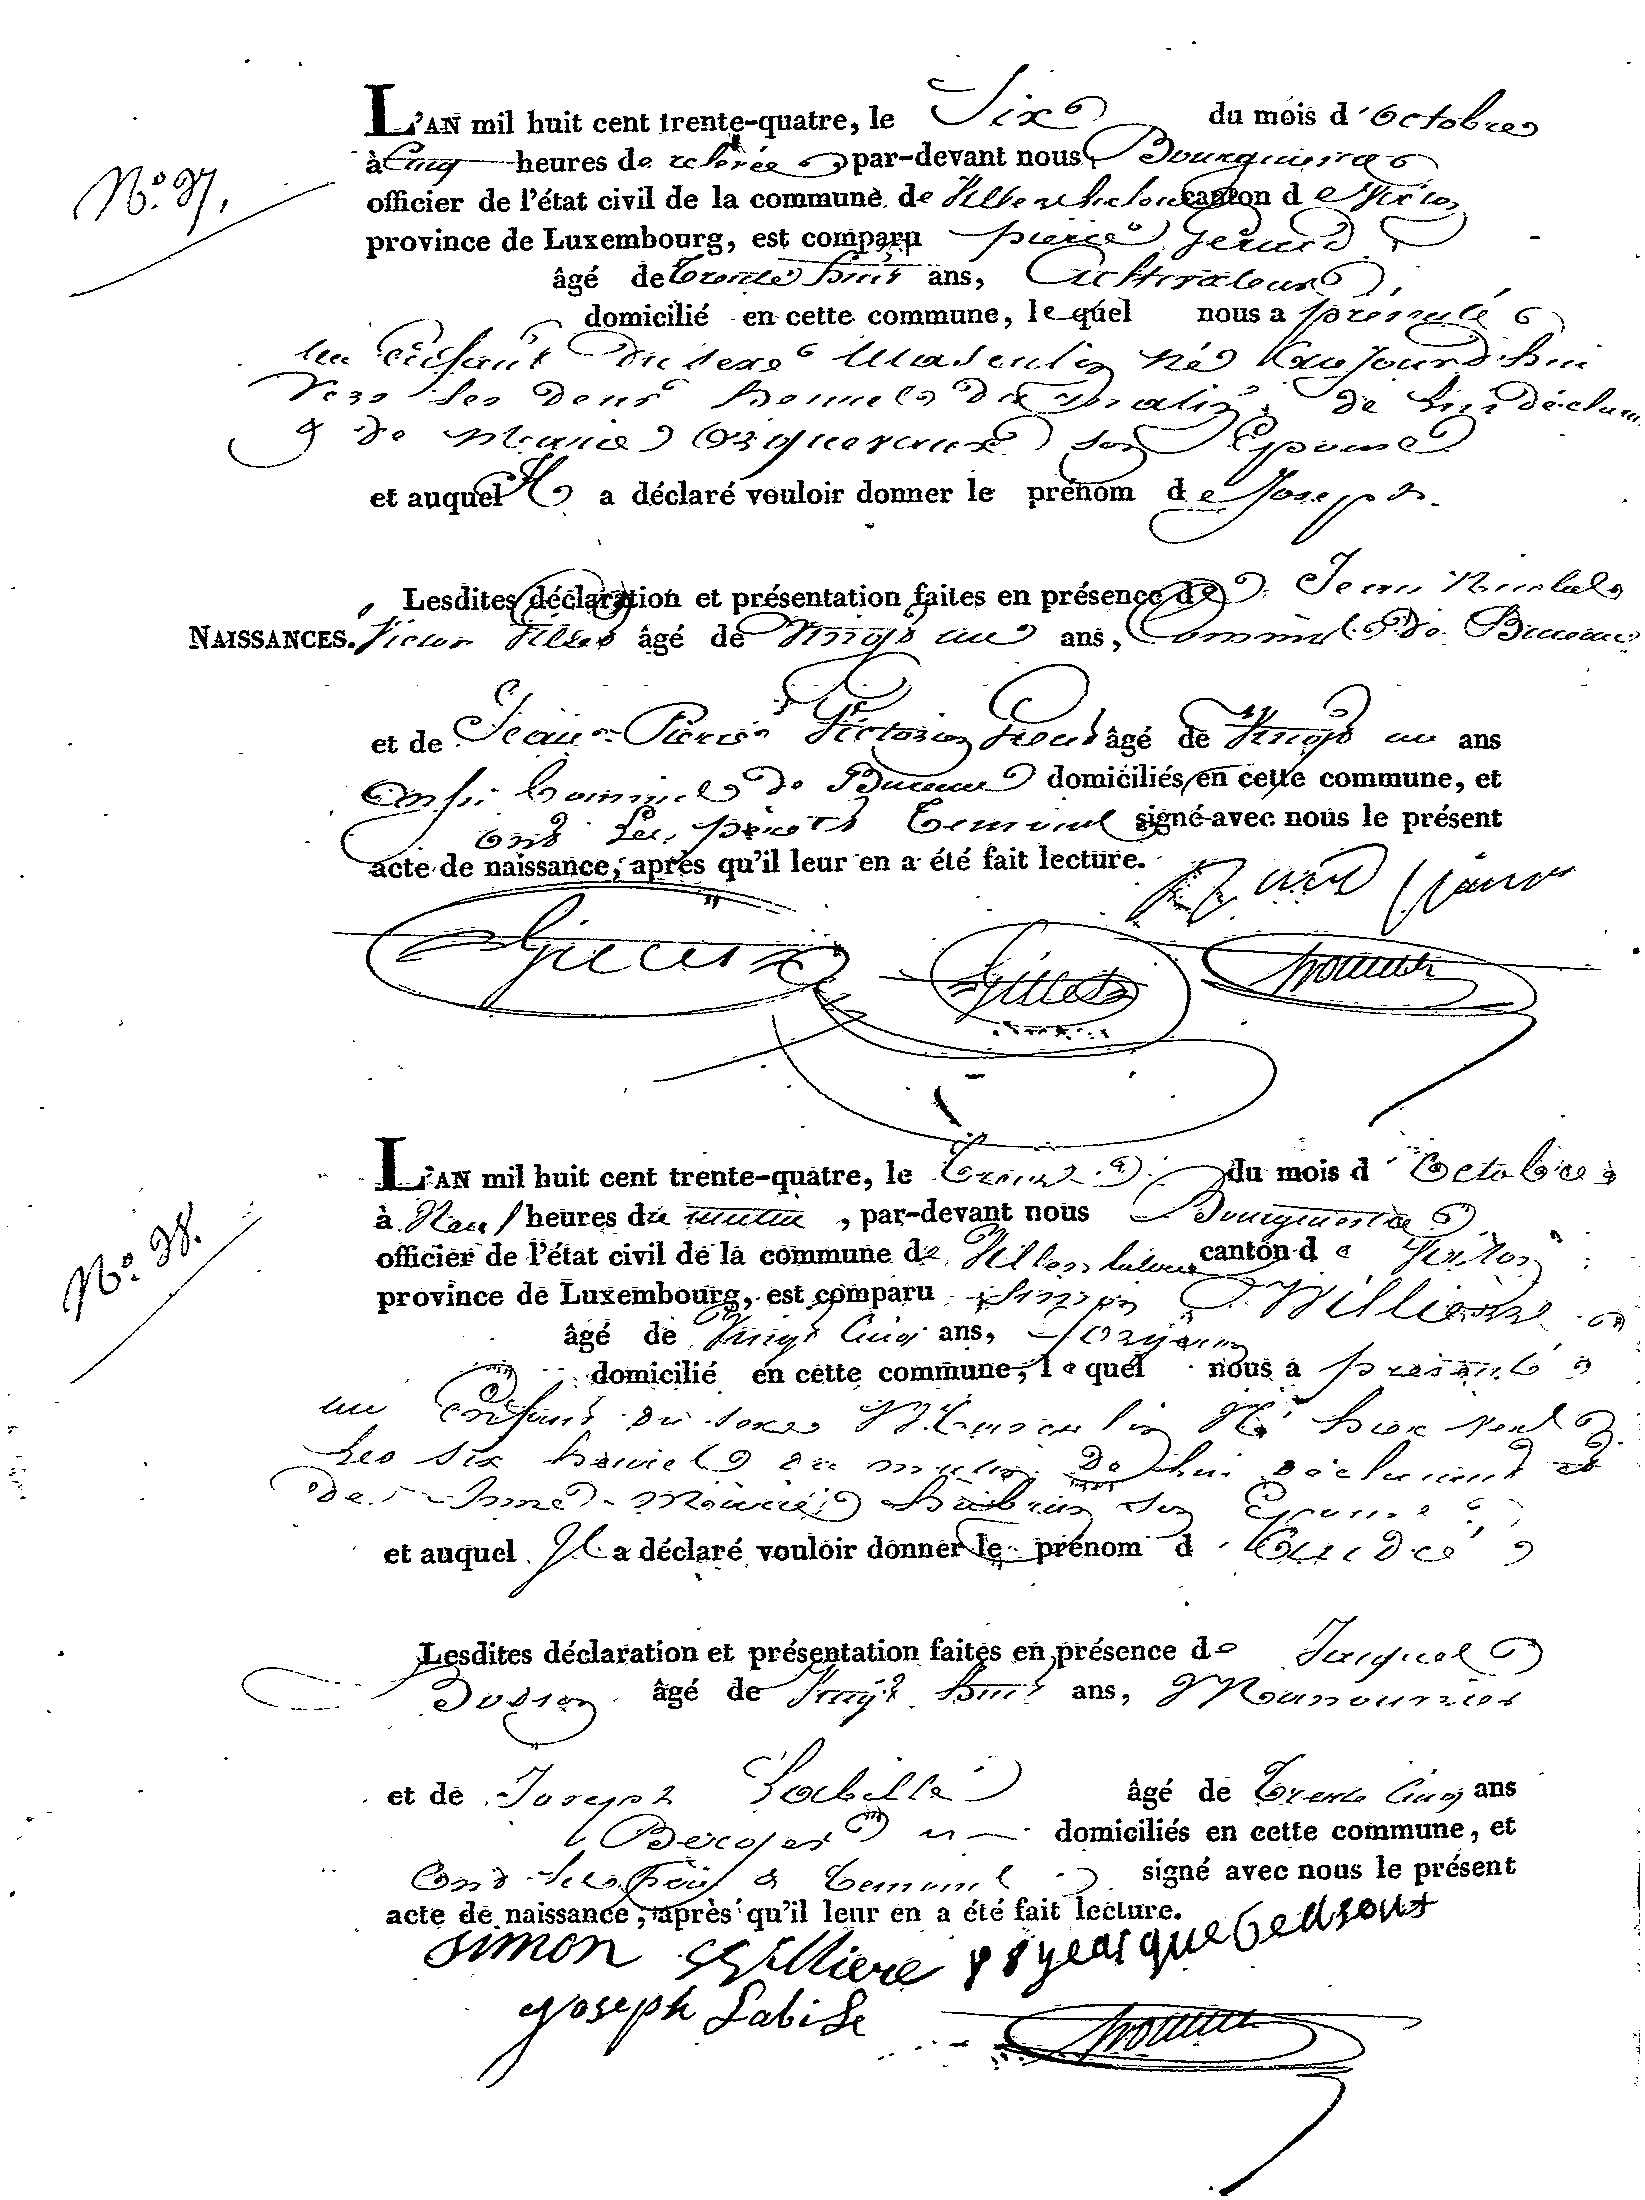 L'AN mil huit cent trente-quatre, le Six du mois d'Octobre
N.º 37.
à Cinq heures de relevée par-devant nous Bourguemestre
officier de l'état civil de la commune de canton de Virton
province de Luxembourg, est comparu pierre Gerard
âgé de trente huit ans, Cultivateur,
domicilié en cette commune, lequel nous a présenté
un Enfant du sexe Masculin né aujourd'hui
vers les deux heures du matin, de lui déclarant
& de Marie son Epouse
et auquel Il a déclaré vouloir donner le prénom de Joseph.
Lesdites déclaration et présentation faites en présence de Jean Nicolas
NAISSANCES. Victor âgé de Vingt un ans, Commis de Bureau
et de Jean-Pierre Victorin âgé de Vingt un ans
aussi Commis de Bureau domiciliés en cette commune, et
ont les père & témoins signé avec nous le présent
acte de naissance, après qu'il leur en a été fait lecture.
L'AN mil huit cent trente-quatre, le Treize du mois d'Octobre
à Neuf heures du matin, par-devant nous Bourgmestre
N.º 38.
officier de l'état civil de la commune de canton de Virton
province de Luxembourg, est comparu Simon Willieme
âgé de Vingt Cinq ans,
domicilié en cette commune, lequel nous a présenté
un Enfant du sexe Masculin Né hier vers
les six heures du matin de lui déclarant et
de Anne-Marie son Epouse
et auquel Il a déclaré vouloir donner le prénom d'André
Lesdites déclaration et présentation faites en présence de Jacques
Bosson âgé de Vingt huit ans, Manouvrier
et de Joseph Labille âgé de Trente Cinq ans
Berger domiciliés en cette commune, et
Ont les père & témoins signé avec nous le présent
acte de naissance, après qu'il leur en a été fait lecture.
simon
joseph Labile